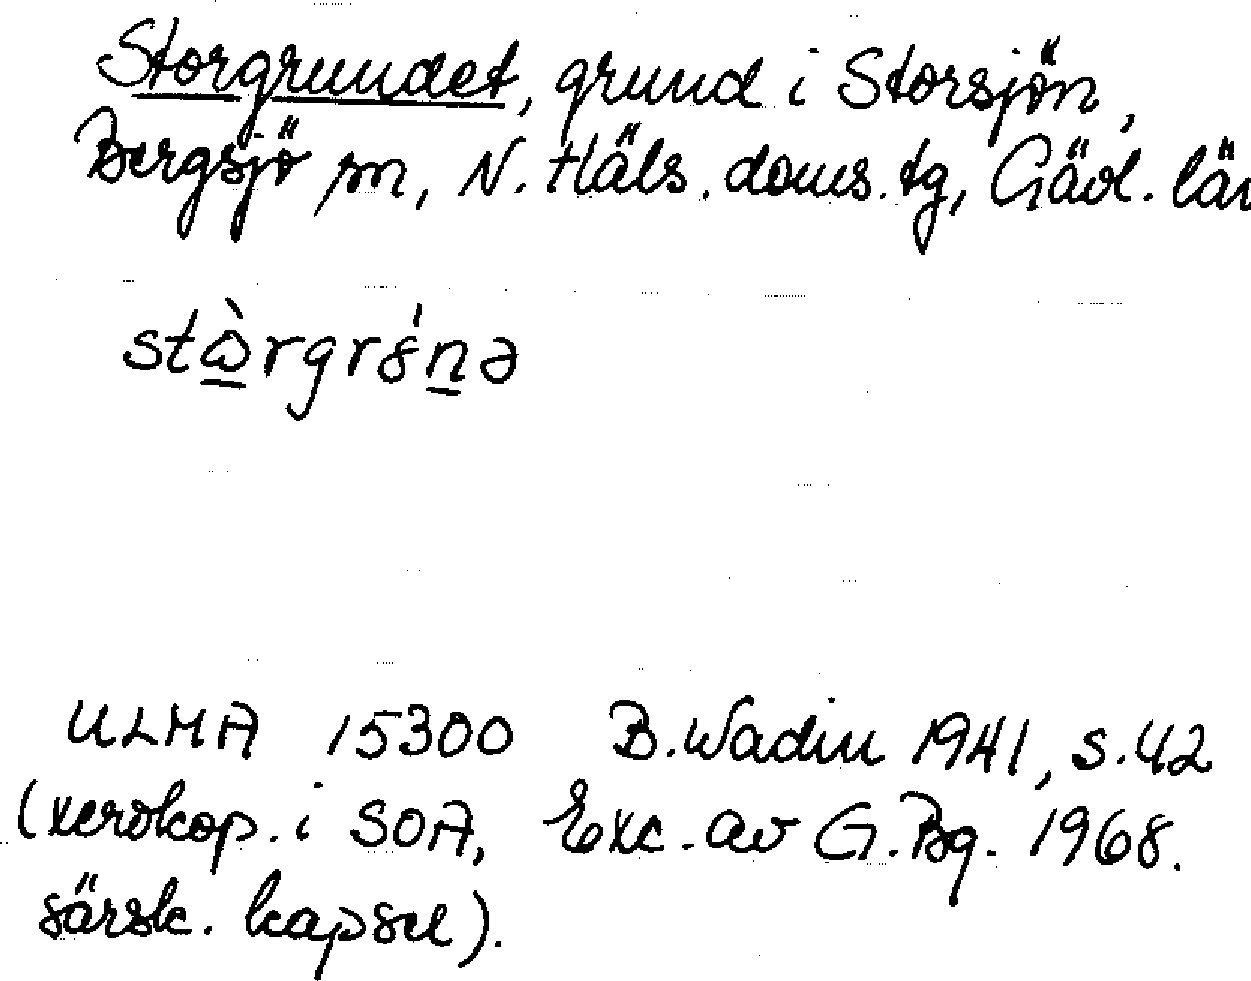 Storgrundet, grund i Storsjön,
Bergsjö sn, N. Häls. doms. tg, Gävl. län
stɷ̀rgrś̌nə
ULMA 15300 B. Wadin 1941, s. 42
(xerokop. i SOA, Exc. av G. Bg. 1968.
särsk. kapsel).